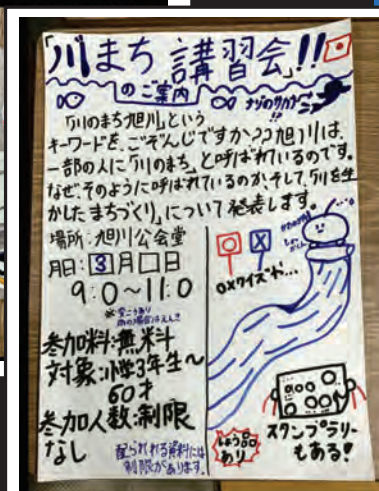 「川まち講習会」!!
のご案内
ナゾのサカナ
!!
「川のまち旭川」という
キーワードを、ごぞんじですか??旭川は、
一部の人に「川のまち」と呼ばれているのです。
なぜ、そのように呼ばれているのか、そして、「川を生
かしたまちづくり」について発表します。
場所:旭川公会堂
月日:3月□日
9:0〜11:0
参加料:無料
対象:小学3年生〜
60才
参加人数:制限
なし
配られる資料には
制限があります。
○×
○×クイズや…
しょう品
あり
スタンプラリー
もある!